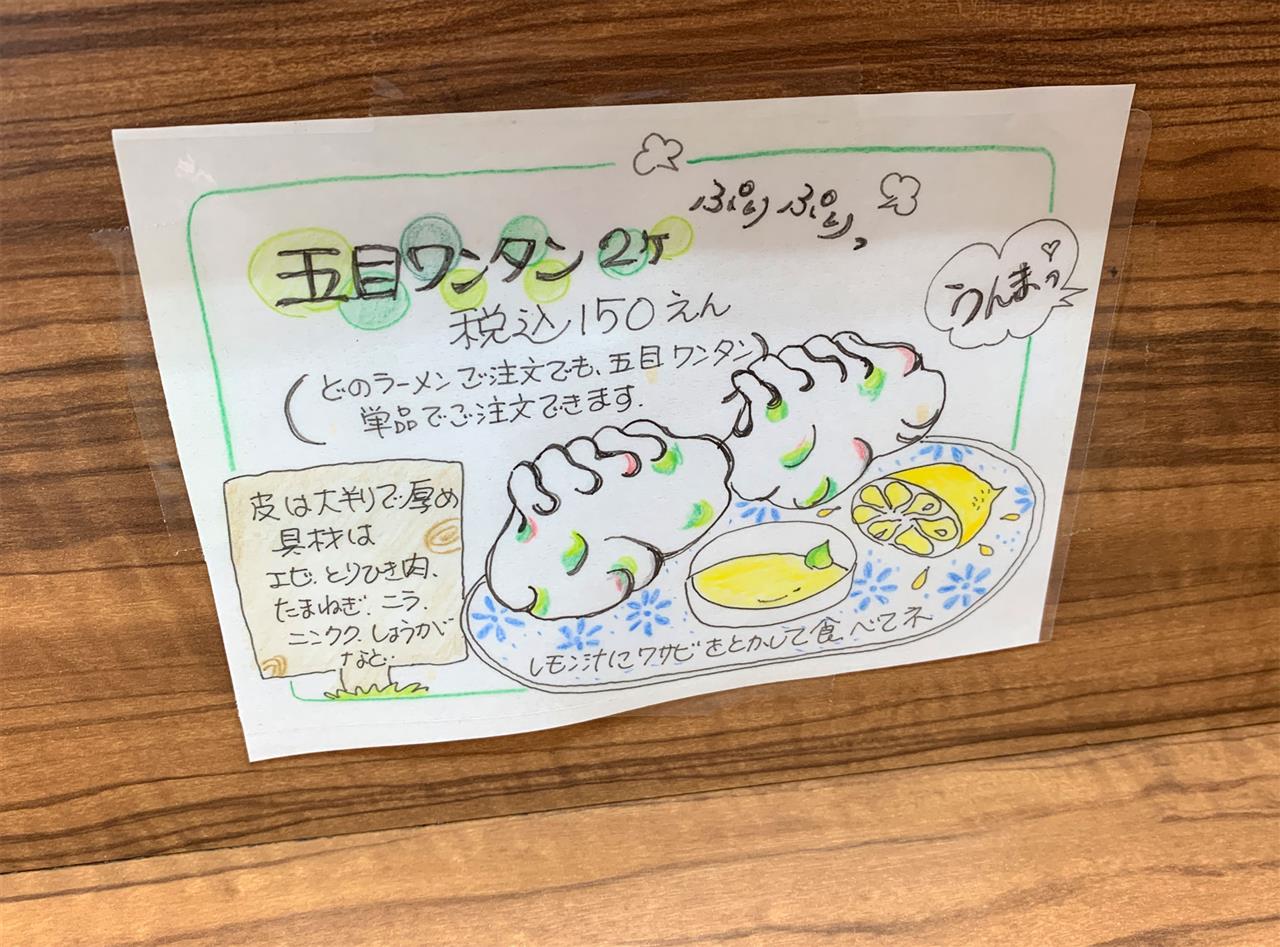 ぷりぷりっ
うんまっ♡
五目ワンタン 2ヶ
税込150えん
(どのラーメンご注文でも、五目ワンタン
単品でご注文できます.)
皮は大判で厚め
具材は
エビ、とりひき肉、
たまねぎ、ニラ、
ニンニク、しょうが
など..
レモン汁にワサビをとかして食べてネ